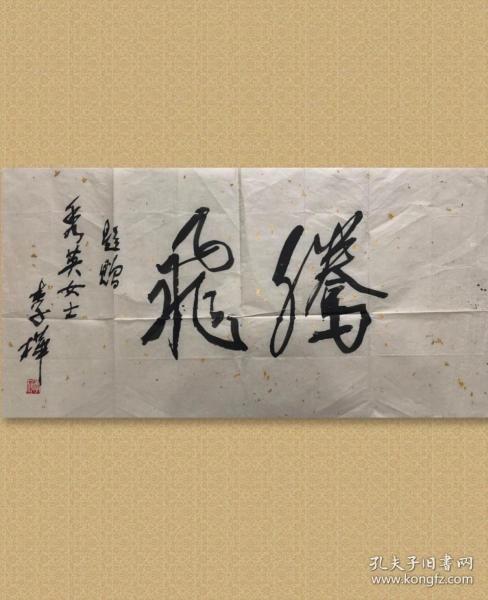 騰飛
題贈
秀英女士
李樺
孔夫子旧书网
www.kongfz.com